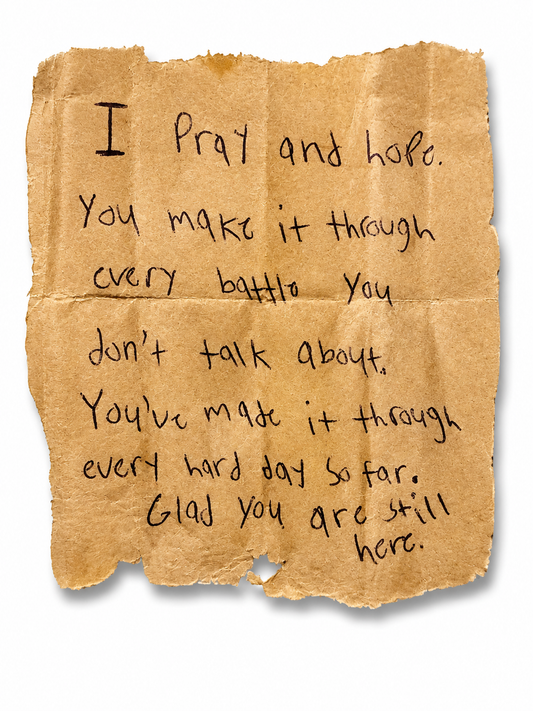 I Pray and hope.
You make it through
every battle you
don't talk about.
You've made it through
every hard day so far.
Glad you are still
here.